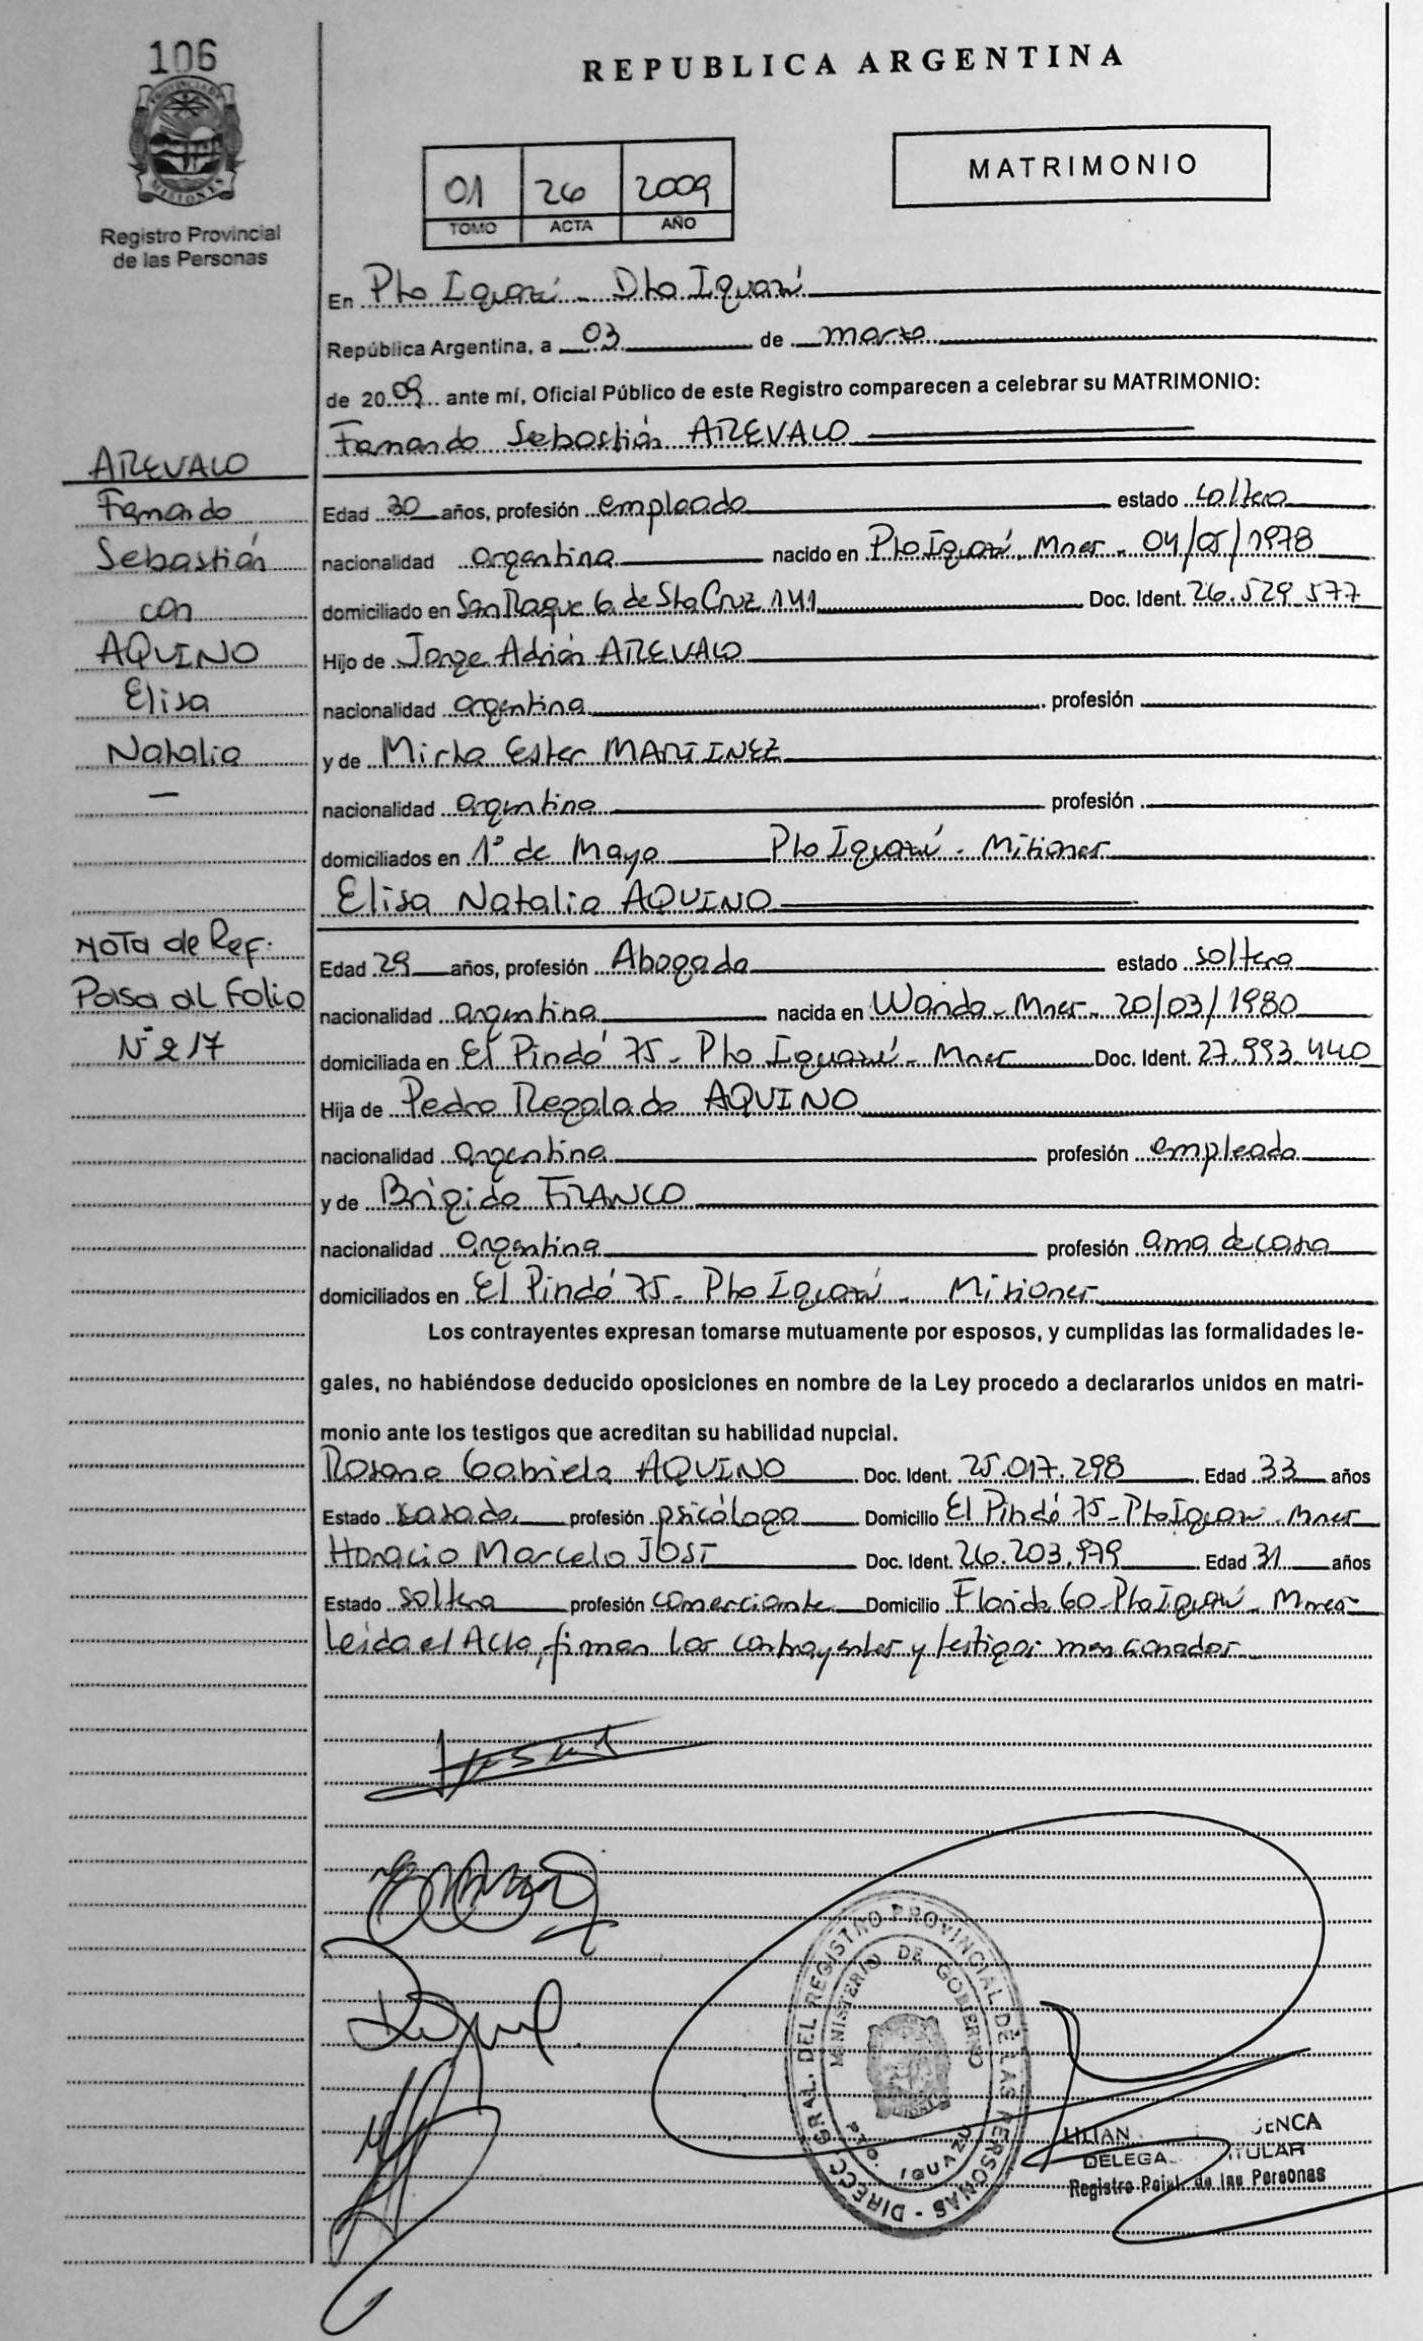 106
PROVINCIA DE
MISIONES
Registro Provincial
de las Personas
REPUBLICA ARGENTINA
01 26 2009
TOMO ACTA AÑO
MATRIMONIO
En Pto Iguazú - Dto Iguazú
República Argentina, a 03 de marzo
de 2009 ante mí, Oficial Público de este Registro comparecen a celebrar su MATRIMONIO:
Fernando Sebastián AREVALO
Edad 30 años, profesión empleado estado soltero
nacionalidad argentina nacido en Pto Iguazú. Mnes - 04/05/1978
domiciliado en San Roque G de Sta Cruz 141 Doc. Ident. 26.529.577
Hijo de Jorge Adrián AREVALO
nacionalidad argentina profesión
y de Mirta Ester MARTINEZ
nacionalidad argentina profesión
domiciliados en 1° de Mayo Pto Iguazú - Misiones
Elisa Natalia AQUINO
Edad 29 años, profesión Abogada estado soltera
nacionalidad argentina nacida en Wanda - Mnes - 20/03/1980
domiciliada en El Pindó 75 - Pto Iguazú - Mnes Doc. Ident. 27.993.440
Hija de Pedro Regalado AQUINO
nacionalidad argentina profesión empleado
y de Brigida FRANCO
nacionalidad argentina profesión ama de casa
domiciliados en El Pindó 75 - Pto Iguazú - Misiones
Los contrayentes expresan tomarse mutuamente por esposos, y cumplidas las formalidades le-
gales, no habiéndose deducido oposiciones en nombre de la Ley procedo a declararlos unidos en matri-
monio ante los testigos que acreditan su habilidad nupcial.
Rosana Gabriela AQUINO Doc. Ident. 25.017.298 Edad 33 años
Estado casada profesión psicóloga Domicilio El Pindó 75 - Pto Iguazú - Mnes
Horacio Marcelo JOST Doc. Ident. 26.203.979 Edad 31 años
Estado soltero profesión comerciante Domicilio Florida 60 - Pto Iguazú - Mnes
Leída el Acta, firman los contrayentes y testigos mencionados
AREVALO
Fernando
Sebastián
con
AQUINO
Elisa
Natalia
—
NOTA de Ref:
Pasa al Folio
N° 217
DIRECC. GRAL. DEL REGISTRO PROVINCIAL DE LAS PERSONAS -
MINISTERIO DE GOBIERNO
PTO. IGUAZU
LILIAN
TITULAR
Registro Pcial. de las Personas